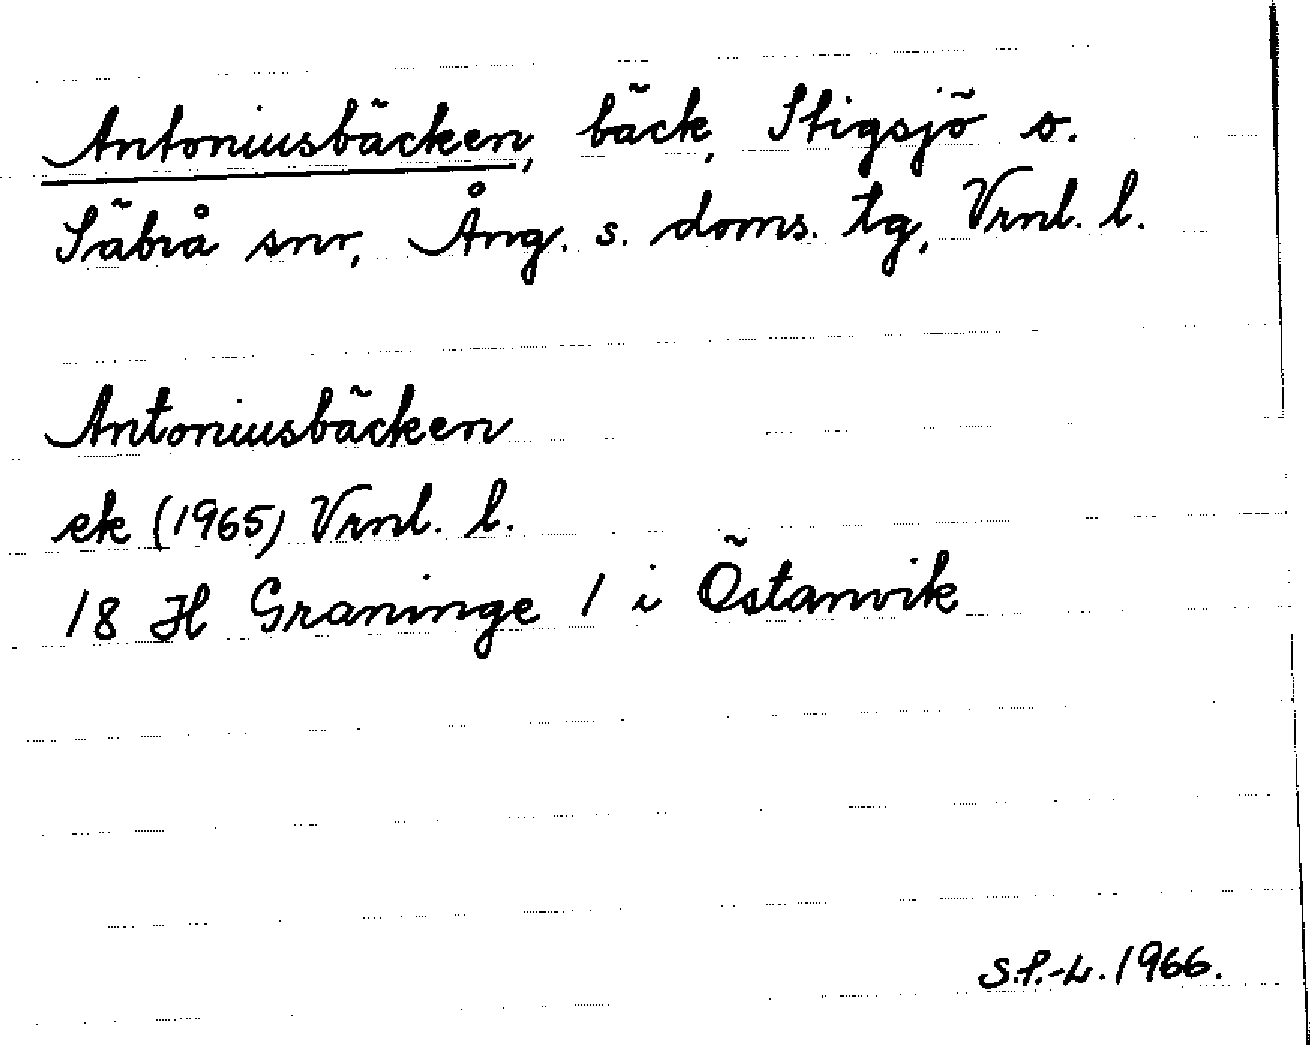 Antoniusbäcken, bäck, Stigsjö o.
Säbrå snr, Ång. s. doms. tg, Vrnl. l.
Antoniusbäcken
ek (1965) Vrnl. l.
18 H Graninge 1 i Östanvik
S.P.-L. 1966.